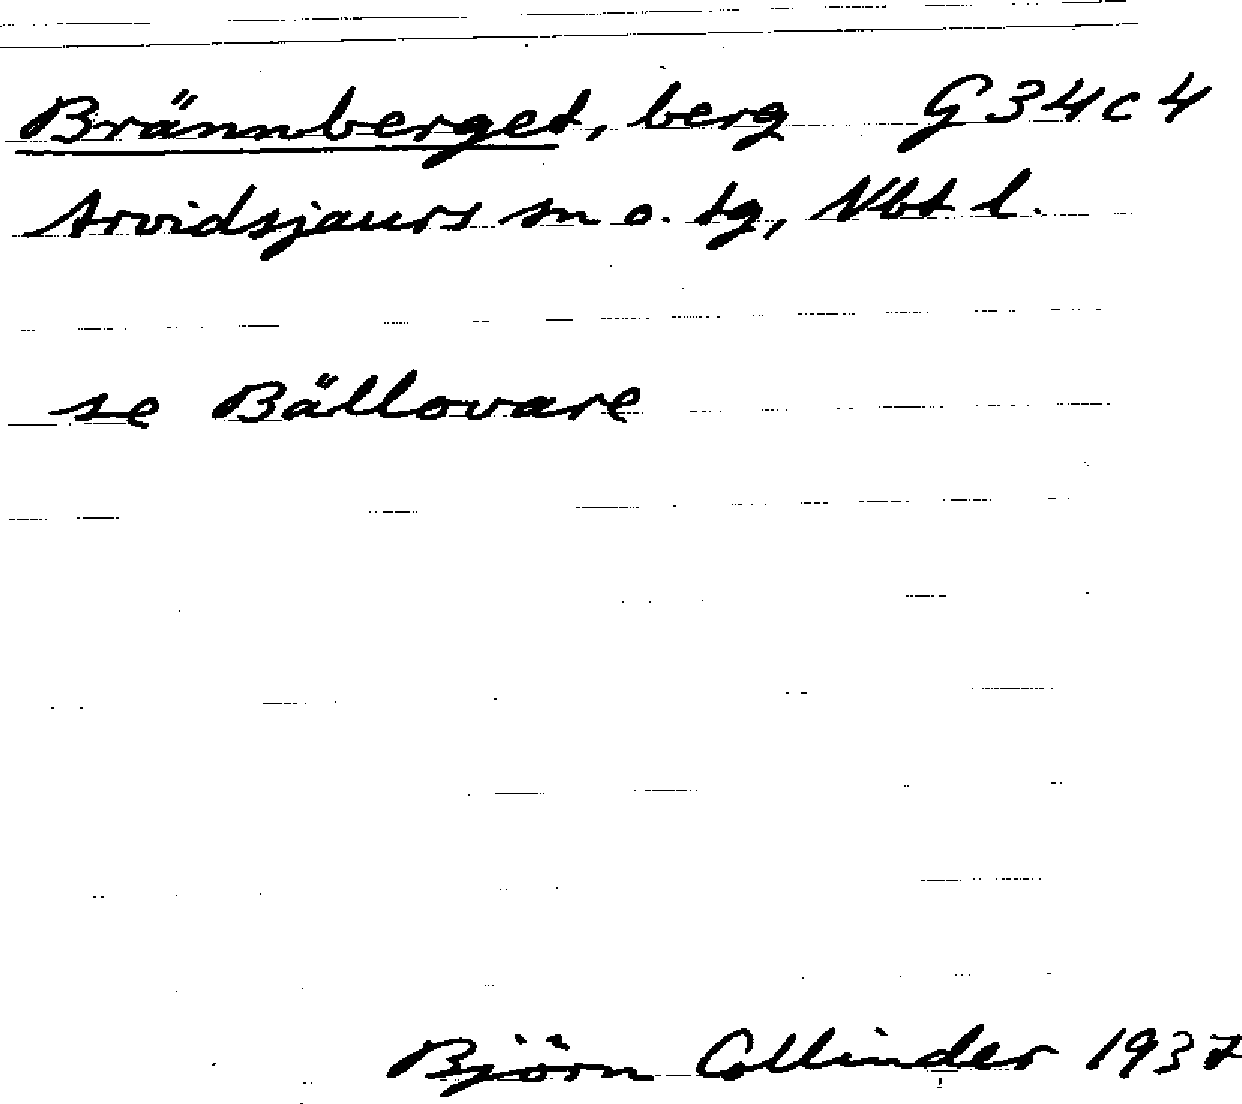 Brännberget, berg G34c4
Arvidsjaurs sn o. tg, Vbt l.
se Bällovare
Björn Collinder 1937